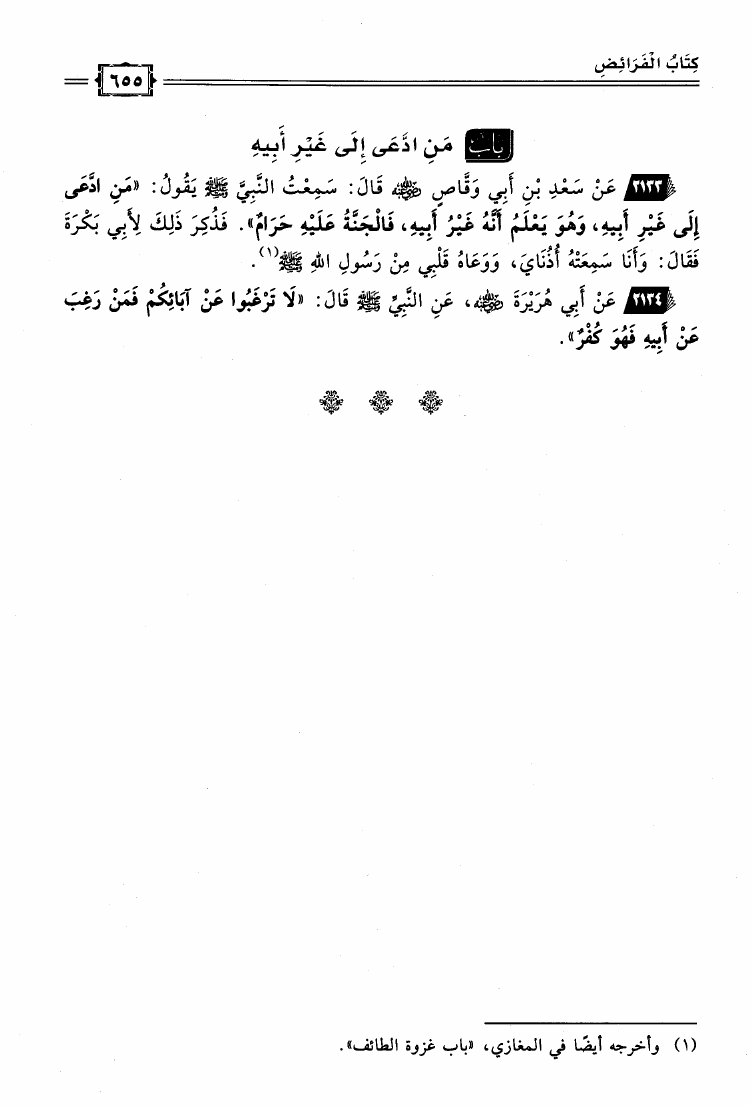 كِتَابُ الْفَرَائِضِ
٦٥٥
باب مَنِ ادَّعَى إِلَى غَيْرِ أَبِيهِ
٢١٣٣ عَنْ سَعْدِ بْنِ أَبِي وَقَّاصٍ رضي الله عنه قَالَ: سَمِعْتُ النَّبِيَّ ﷺ يَقُولُ: «مَنِ ادَّعَى
إِلَى غَيْرِ أَبِيهِ، وَهُوَ يَعْلَمُ أَنَّهُ غَيْرُ أَبِيهِ، فَالْجَنَّةُ عَلَيْهِ حَرَامٌ». فَذُكِرَ ذَلِكَ لِأَبِي بَكْرَةَ
فَقَالَ: وَأَنَا سَمِعَتْهُ أُذُنَايَ، وَوَعَاهُ قَلْبِي مِنْ رَسُولِ اللهِ ﷺ(١).
٢١٣٤ عَنْ أَبِي هُرَيْرَةَ رضي الله عنه، عَنِ النَّبِيِّ ﷺ قَالَ: «لَا تَرْغَبُوا عَنْ آبَائِكُمْ فَمَنْ رَغِبَ
عَنْ أَبِيهِ فَهُوَ كُفْرٌ».
(١) وأخرجه أيضًا في المغازي، «باب غزوة الطائف».